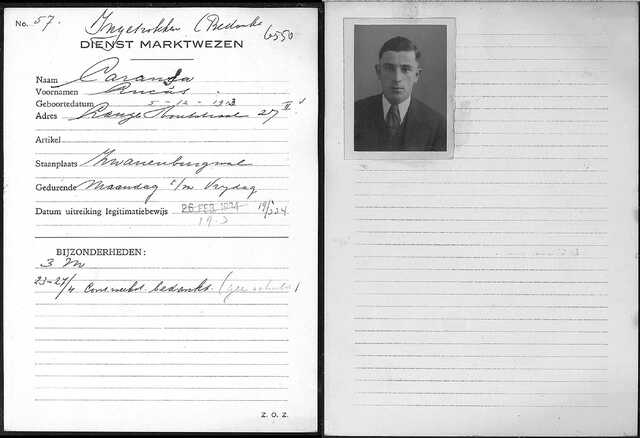 No. 57. Ingetrokken (Bedankt
6550
DIENST MARKTWEZEN
Naam Caransa
Voornamen
Geboortedatum 5-12-1913
Adres Lange Houtstraat 27 II
Artikel
Staanplaats Zwanenburgwal
Gedurende Maandag t/m Vrydag
Datum uitreiking legitimatiebewijs 26 FEB. 1934
BIJZONDERHEDEN:
3 M
23-27/4. bedankt.
Z. O. Z.